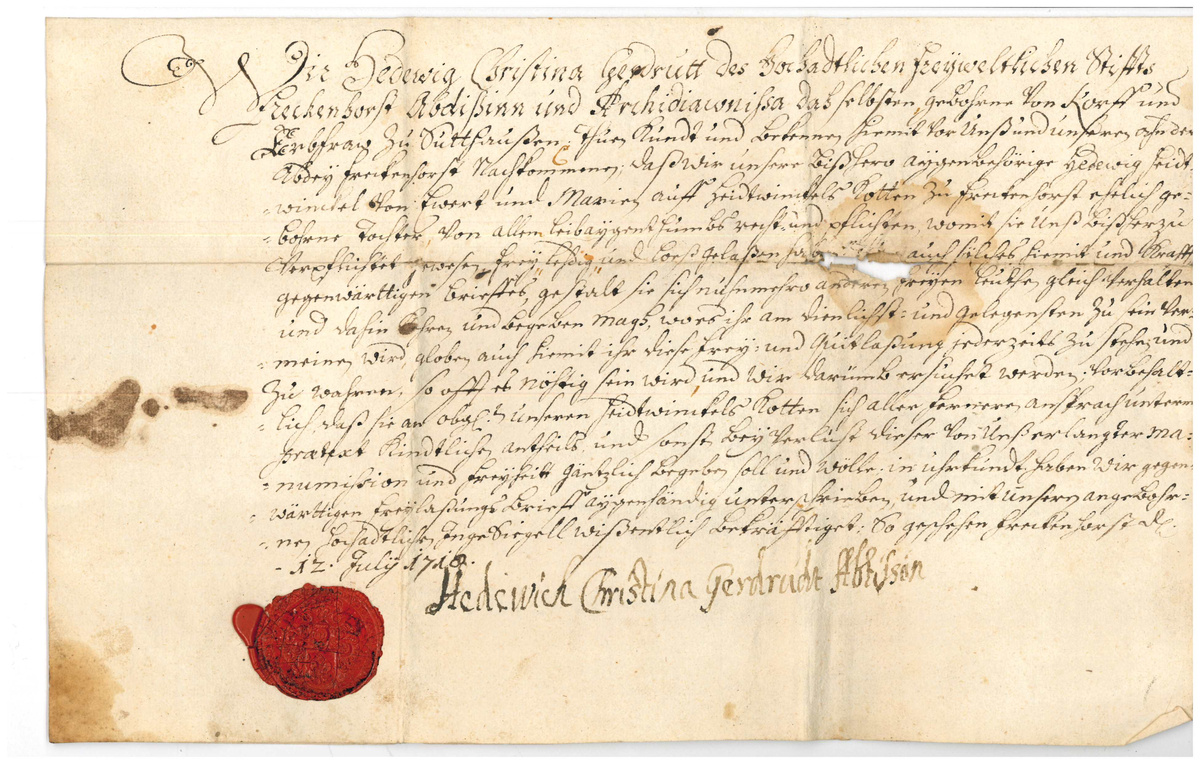 Wir Hedewig Christina Gerdrutt des Hochadtlichen freyweltlichen Stiffts
Freckenhorst Abdißinn und Archidiaconissa daß selbsten, gebohrne Von Korff und
Erbfraw zu Sutthaußen, Thuen Kundt und bekennen hiemit vor Unß und unseren ahn der
Abdey freckenhorst Nachkommenen, daß wir unsere bißhero aygenbehörige Hedewig Heidt-
-winckel von Ewert und Marien auff Heidtwinckels Kotten zu freckenhorst ehelich ge-
-bohrne Tochter, von allem leibaygenthumbs recht und pflichten, womit sie Unß bißherzu
verpflichtet gewesen, frey ledig und loeß gelaßen auch solches hiemit und Krafft
gegenwärttigen brieffes, gestalt sie sich nuhnmehro anderen freyen leuthen gleich verhalten
und dahin kehren und begeben magh, wo es ihr am dienlichst- und gelegensten zu sein ver-
-meinen wird, globen auch hiemit ihr diese frey- und Außlaßung jederzeits zu stehen und
zu wahren, so offt es nöhtig sein wird und wir darumb ersuchet werden, vorbehalt-
-lich, daß sie an unseren Heidtwinckels Kotten sich aller ferneren ansprach unterm
praetext Kindtlichen antheils, und sonst bey verlust dieser von Unß erlangter ma-
-numission und freyheitt gäntzlich begeben soll und wölle, in uhrkundt haben wir gegen-
-wärttigen freylaßungs brieff aygenhändig unterschrieben, und mit unsern angebohr-
-nen hochadtlichen Inge Siegell wißentlich bekräfftiget. So geschehen freckenhorst d.
-12. July 1718.
Hedewich Christina Gerdrudt Abtißin